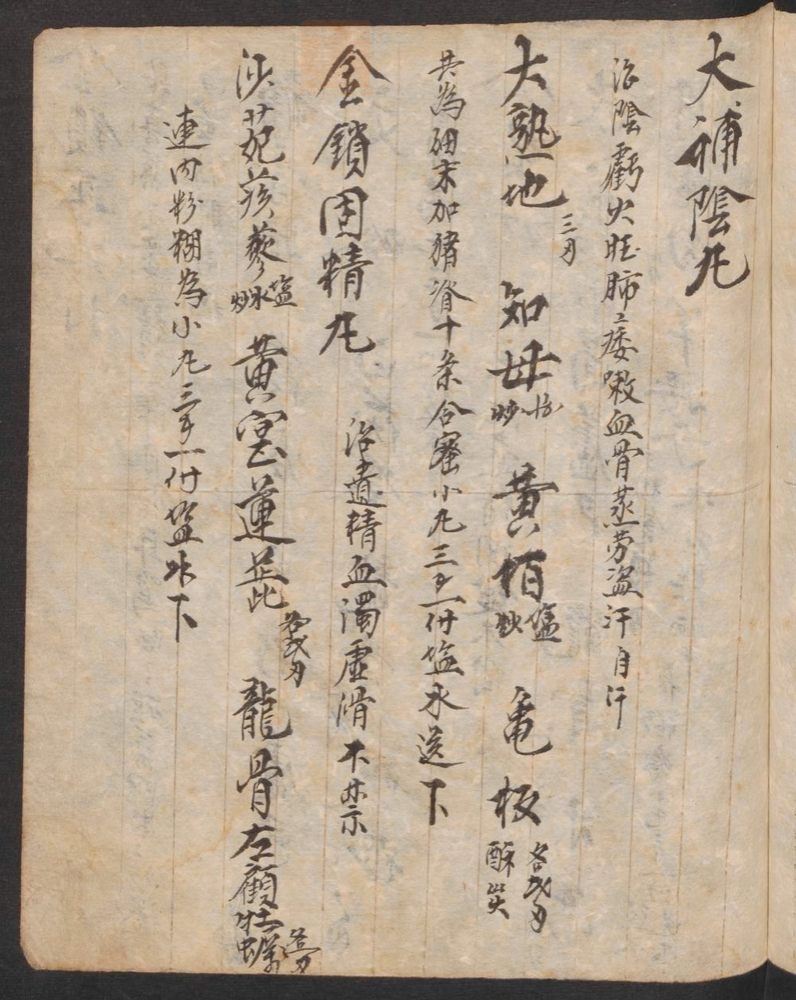 大補陰丸
治陰虧火旺肺痿嗽血骨蒸劳盗汗自汗
大熟地三刄 知母炒 黄栢盐炒 龟板酥炭各弍刄
共為细末加猪脊十条合蜜小丸三一付盐水送下
金鎖固精丸 治遺精血濁虚滑不禁
沙苑蒺蔾盐水炒 黄宲蓮蕋各弍刄 龍骨左顧牡蠣
連肉粉糊為小丸三一付盐水下